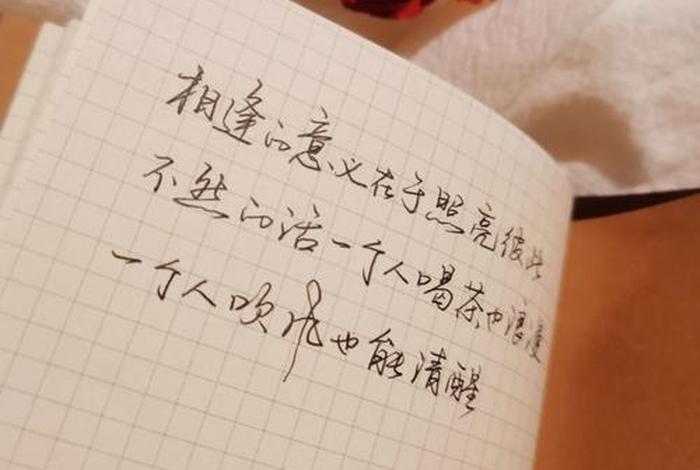 相逢的意义在于照亮彼此
不然的话一个人喝茶也浪漫
一个人吹风也能清醒